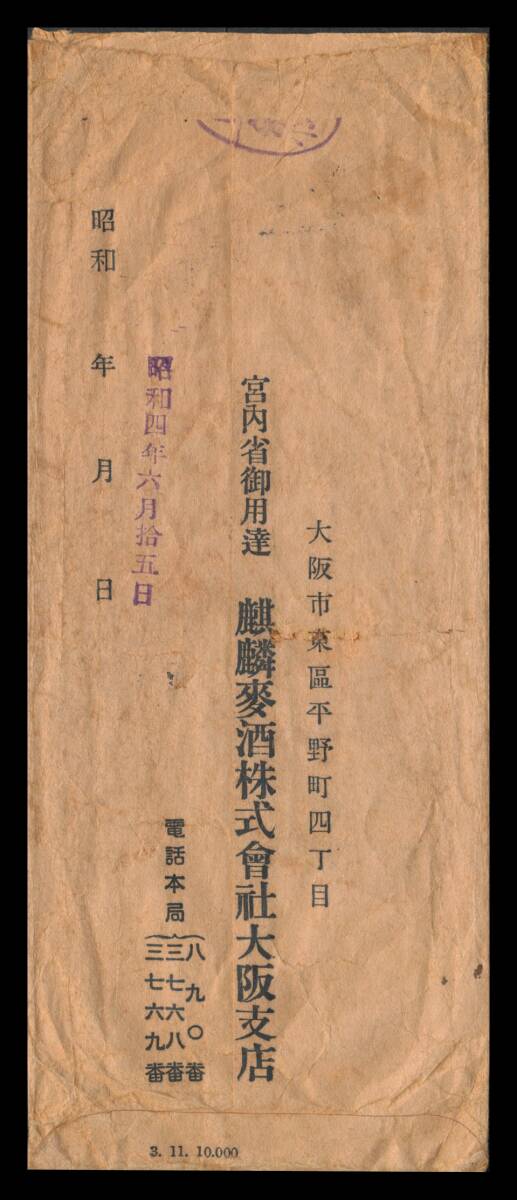 大阪市東區平野町四丁目
宮内省御用達 麒麟麥酒株式會社大阪支店
電話本局
八九〇番
三七六八番
三七六九番
昭和四年六月拾五日
昭和 年 月 日
3. 11. 10.000